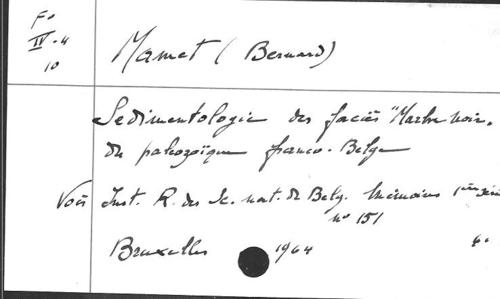 Fo
IV-4
10
Mamet (Bernard)
Sedimentologie des faciès "Marbre noir"
du paleozoïque franco-Belge
Voir Inst. R. des Sc. nat. de Belg. Mémoires 1ère série
n° 151
Bruxelles 1964